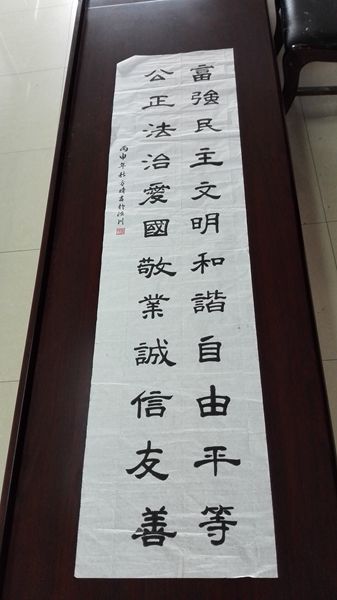 富強民主文明和諧自由平等
公正法治愛國敬業誠信友善
丙申年杜